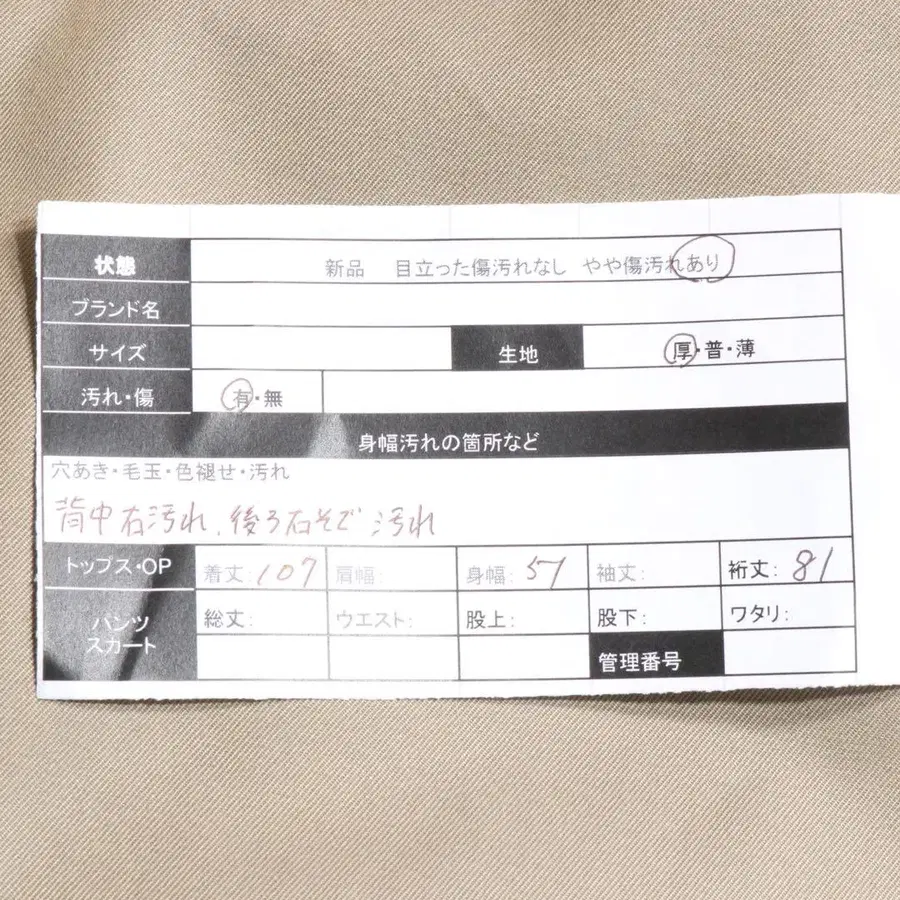 状態 新品 目立った傷汚れなし やや傷汚れあり
ブランド名
サイズ 生地 厚・普・薄
汚れ・傷 有・無
身幅汚れの箇所など
穴あき・毛玉・色褪せ・汚れ
背中右汚れ、後ろ右そで汚れ
トップス・OP 着丈:107 肩幅: 身幅:57 袖丈: 裄丈:81
パンツ 総丈: ウエスト: 股上: 股下: ワタリ:
スカート 管理番号